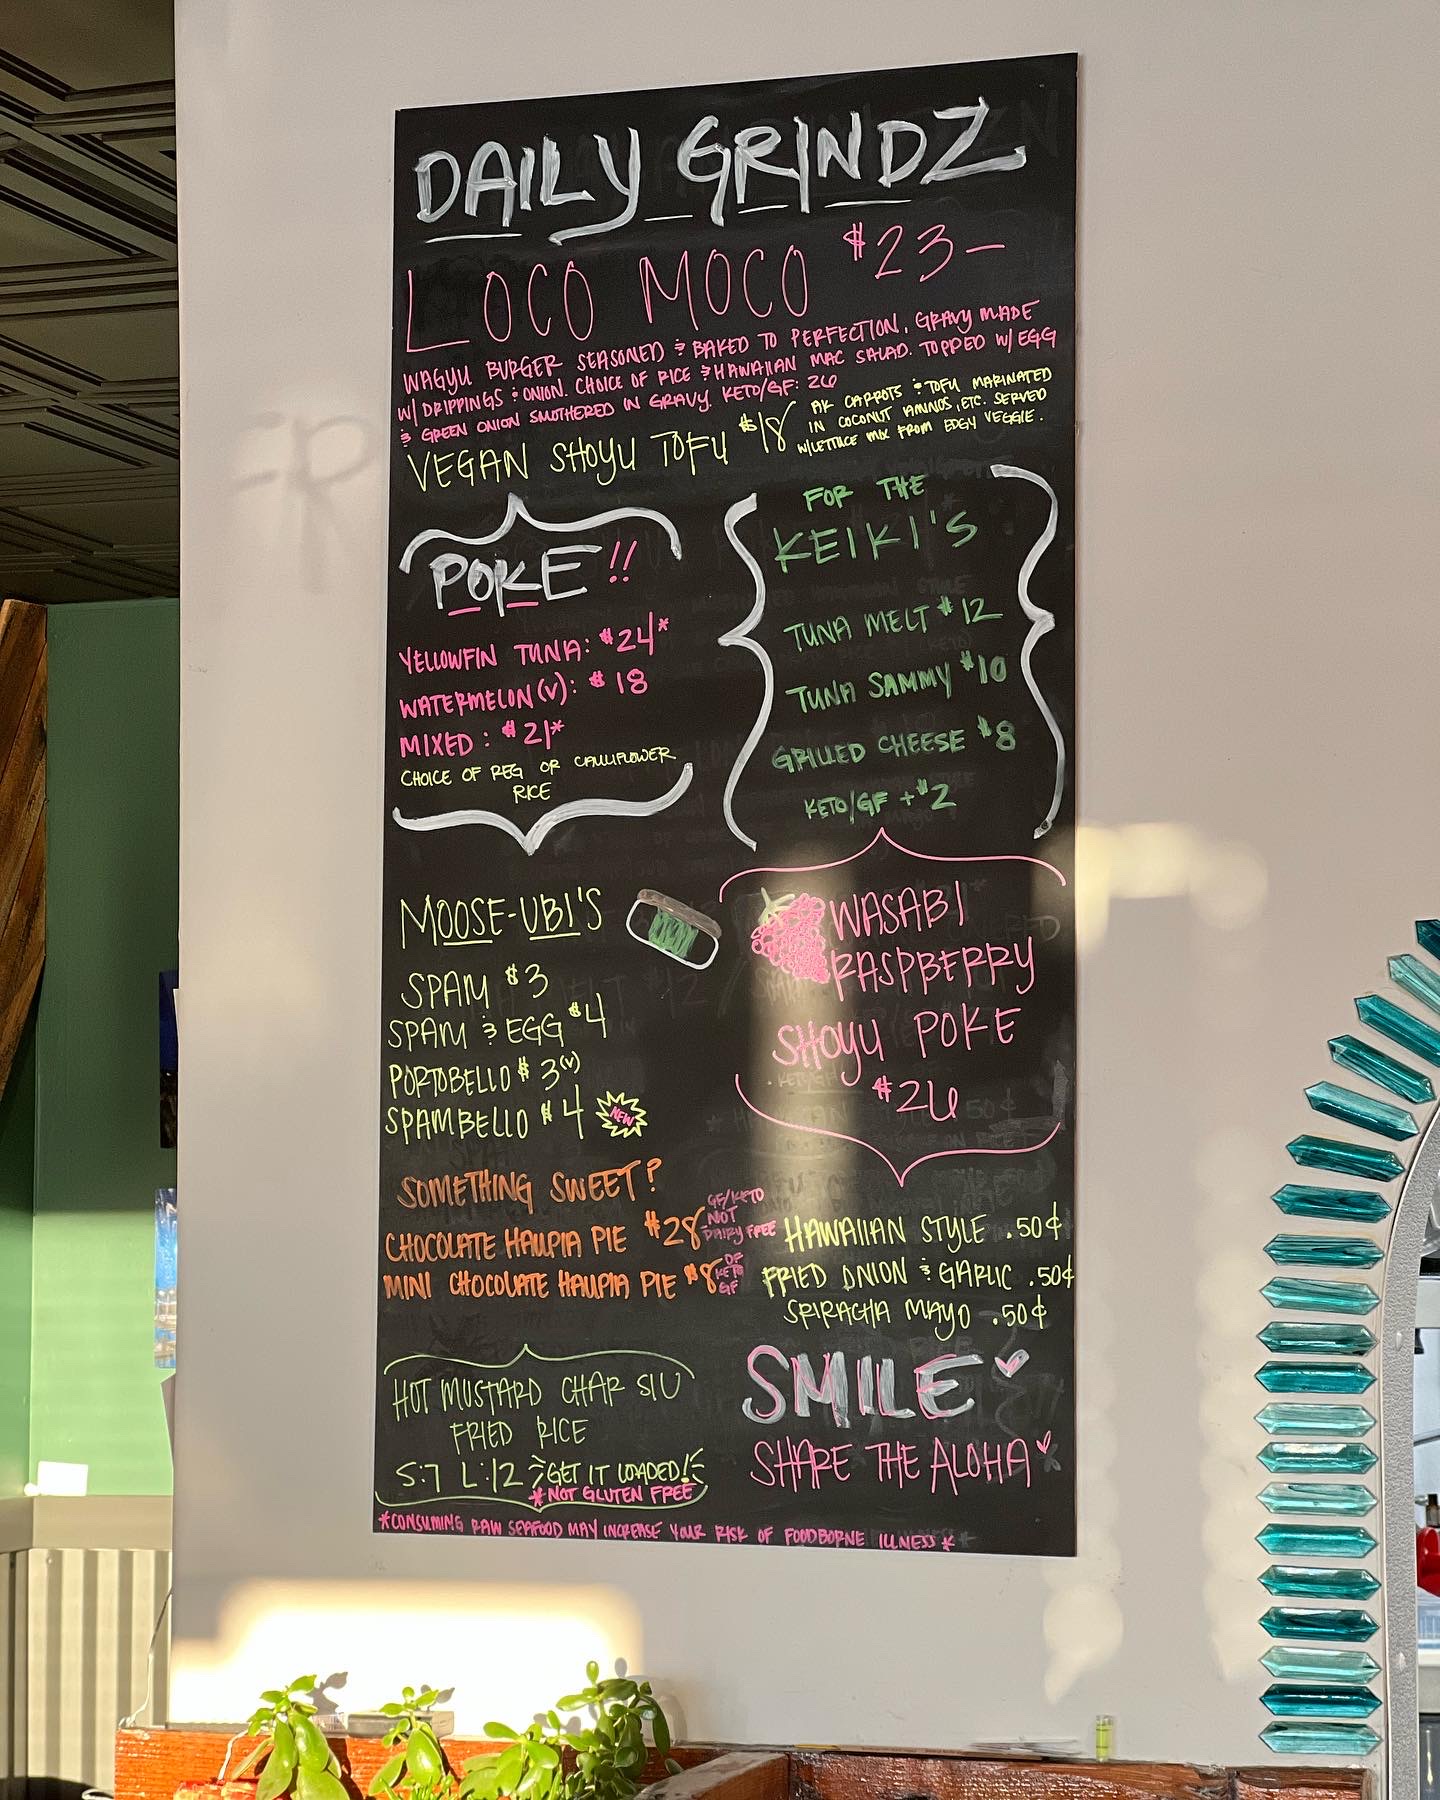 DAILY GRINDZ
LOCO MOCO $23-
WAGYU BURGER SEASONED & BAKED TO PERFECTION, GRAVY MADE
W/ DRIPPINGS & ONION. CHOICE OF RICE & HAWAIIAN MAC SALAD. TOPPED W/ EGG
& GREEN ONION SMOTHERED IN GRAVY. KETO/GF: 26
VEGAN SHOYU TOFU $18
AK CARROTS & TOFU MARINATED
IN COCONUT AMINOS, ETC. SERVED
W/LETTUCE MIX FROM EDGY VEGGIE.
POKE!!
YELLOWFIN TUNA: $24*
WATERMELON(V): $18
MIXED: $21*
CHOICE OF REG OR CAULIFLOWER
RICE
FOR THE
KEIKI'S
TUNA MELT $12
TUNA SAMMY $10
GRILLED CHEESE $8
KETO/GF +$2
MOOSE-UBI'S
SPAM $3
SPAM & EGG $4
PORTOBELLO $3(V)
SPAMBELLO $4 NEW
WASABI
RASPBERRY
SHOYU POKE
$26
SOMETHING SWEET?
CHOCOLATE HAUPIA PIE $28
GF/KETO
NOT
DAIRY FREE
MINI CHOCOLATE HAUPIA PIE $8
DF
KETO
GF
HAWAIIAN STYLE .50¢
FRIED ONION & GARLIC .50¢
SRIRACHA MAYO .50¢
HOT MUSTARD CHAR SIU
FRIED RICE
S:7 L:12 GET IT LOADED!
*NOT GLUTEN FREE
SMILE
SHARE THE ALOHA
*CONSUMING RAW SEAFOOD MAY INCREASE YOUR RISK OF FOODBORNE ILLNESS*